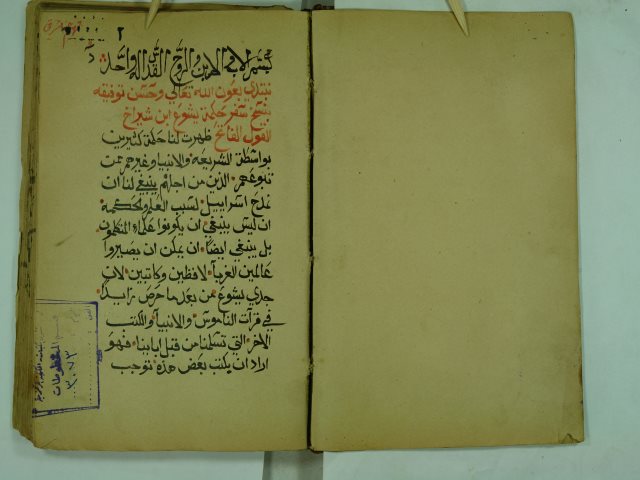 بسم الاب والابن والروح القدس اله واحد
نبتدي بعون الله تعالى وحسن توفيقه
بنسخ سفر حكمة يشوع ابن شيراخ
القول الفاتح ظهرت لنا حكمة كثيرين
بواسطة الشريعه والانبيا وغيرهم ممن
تبوعهم الذين من اجلهم ينبغي لنا ان
نمدح اسراييل لسبب العلم والحكمة
ان ليس ينبغي ان يكونوا علماء المتكلمون
بل ينبغي ايضًا ان يمكن ان يصيروا
عالمين للغربآ لافظين وكاتبين لان
جدي يشوع من بعد ما حرص زايدًا
في قرات الناموس والانبيا والكتب
الاخر التي تسلمنا من قبل ابآينا فهو
اراد ان يكتب بعض هذه توجب
المخطوطات
٣٠٧٣
٢